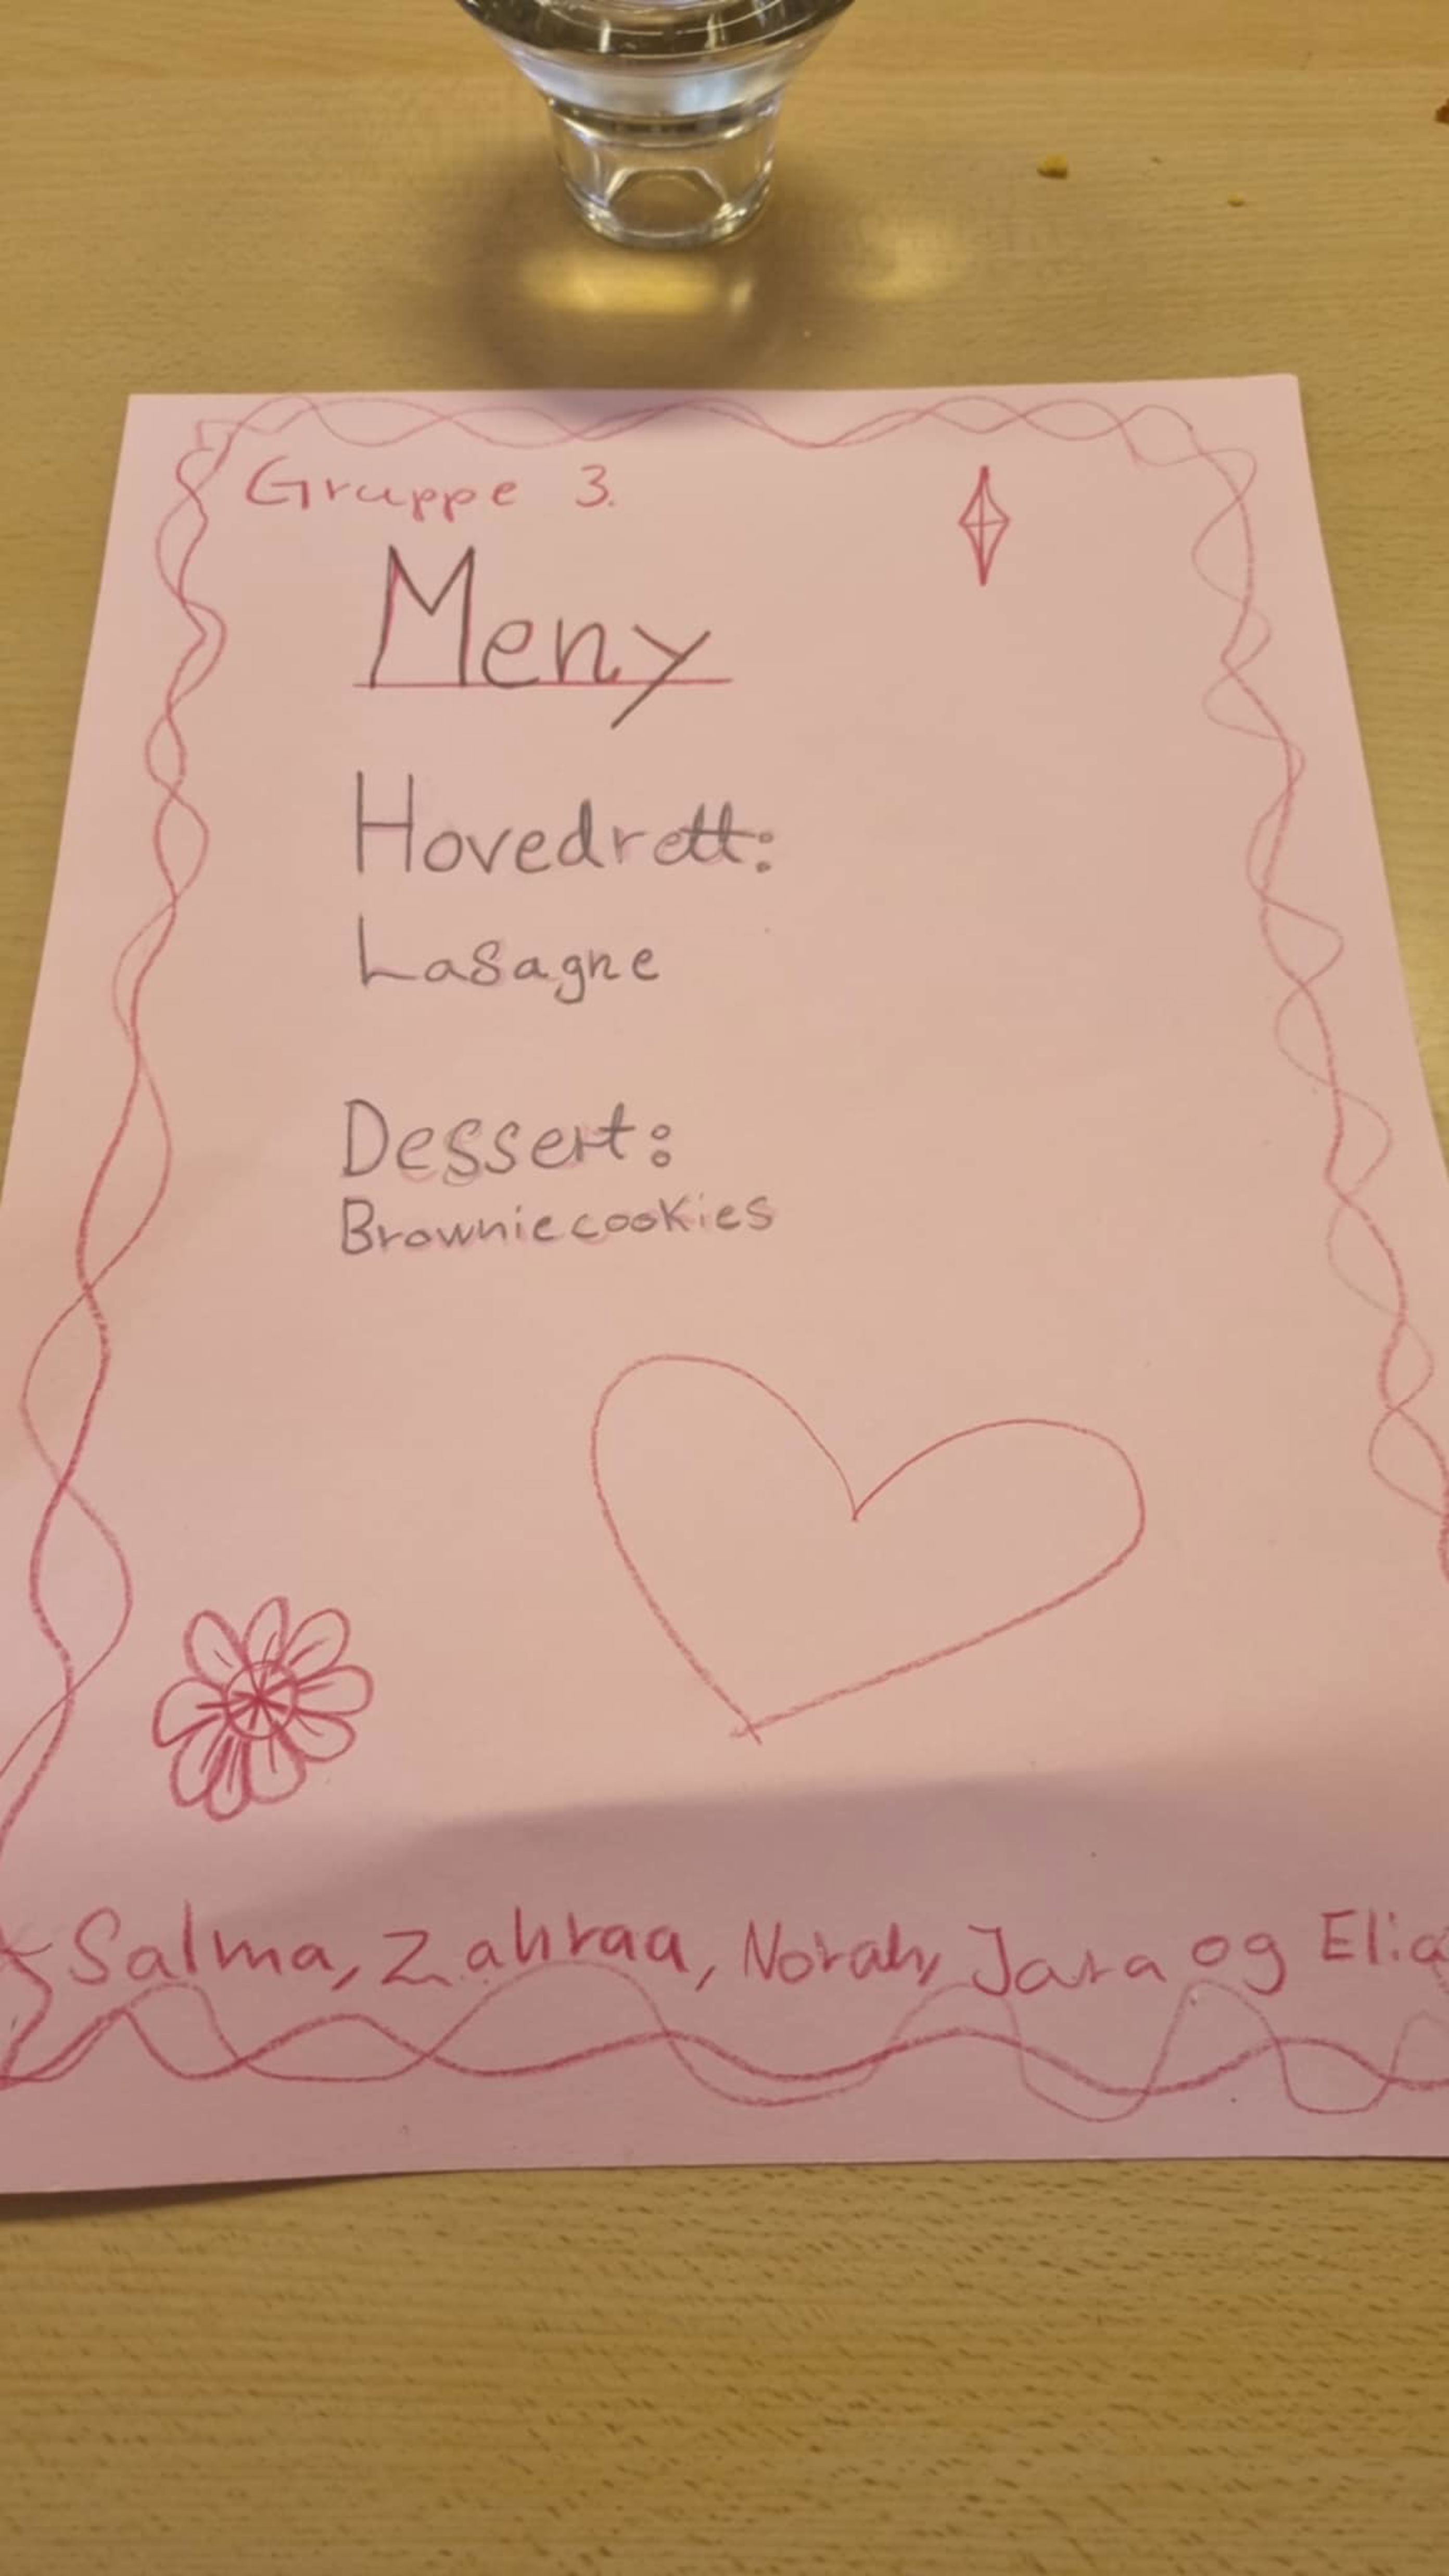 Gruppe 3.
Meny
Hovedrett:
Lasagne
Dessert:
Browniecookies
Salma, Zahraa, Norah, Jara og